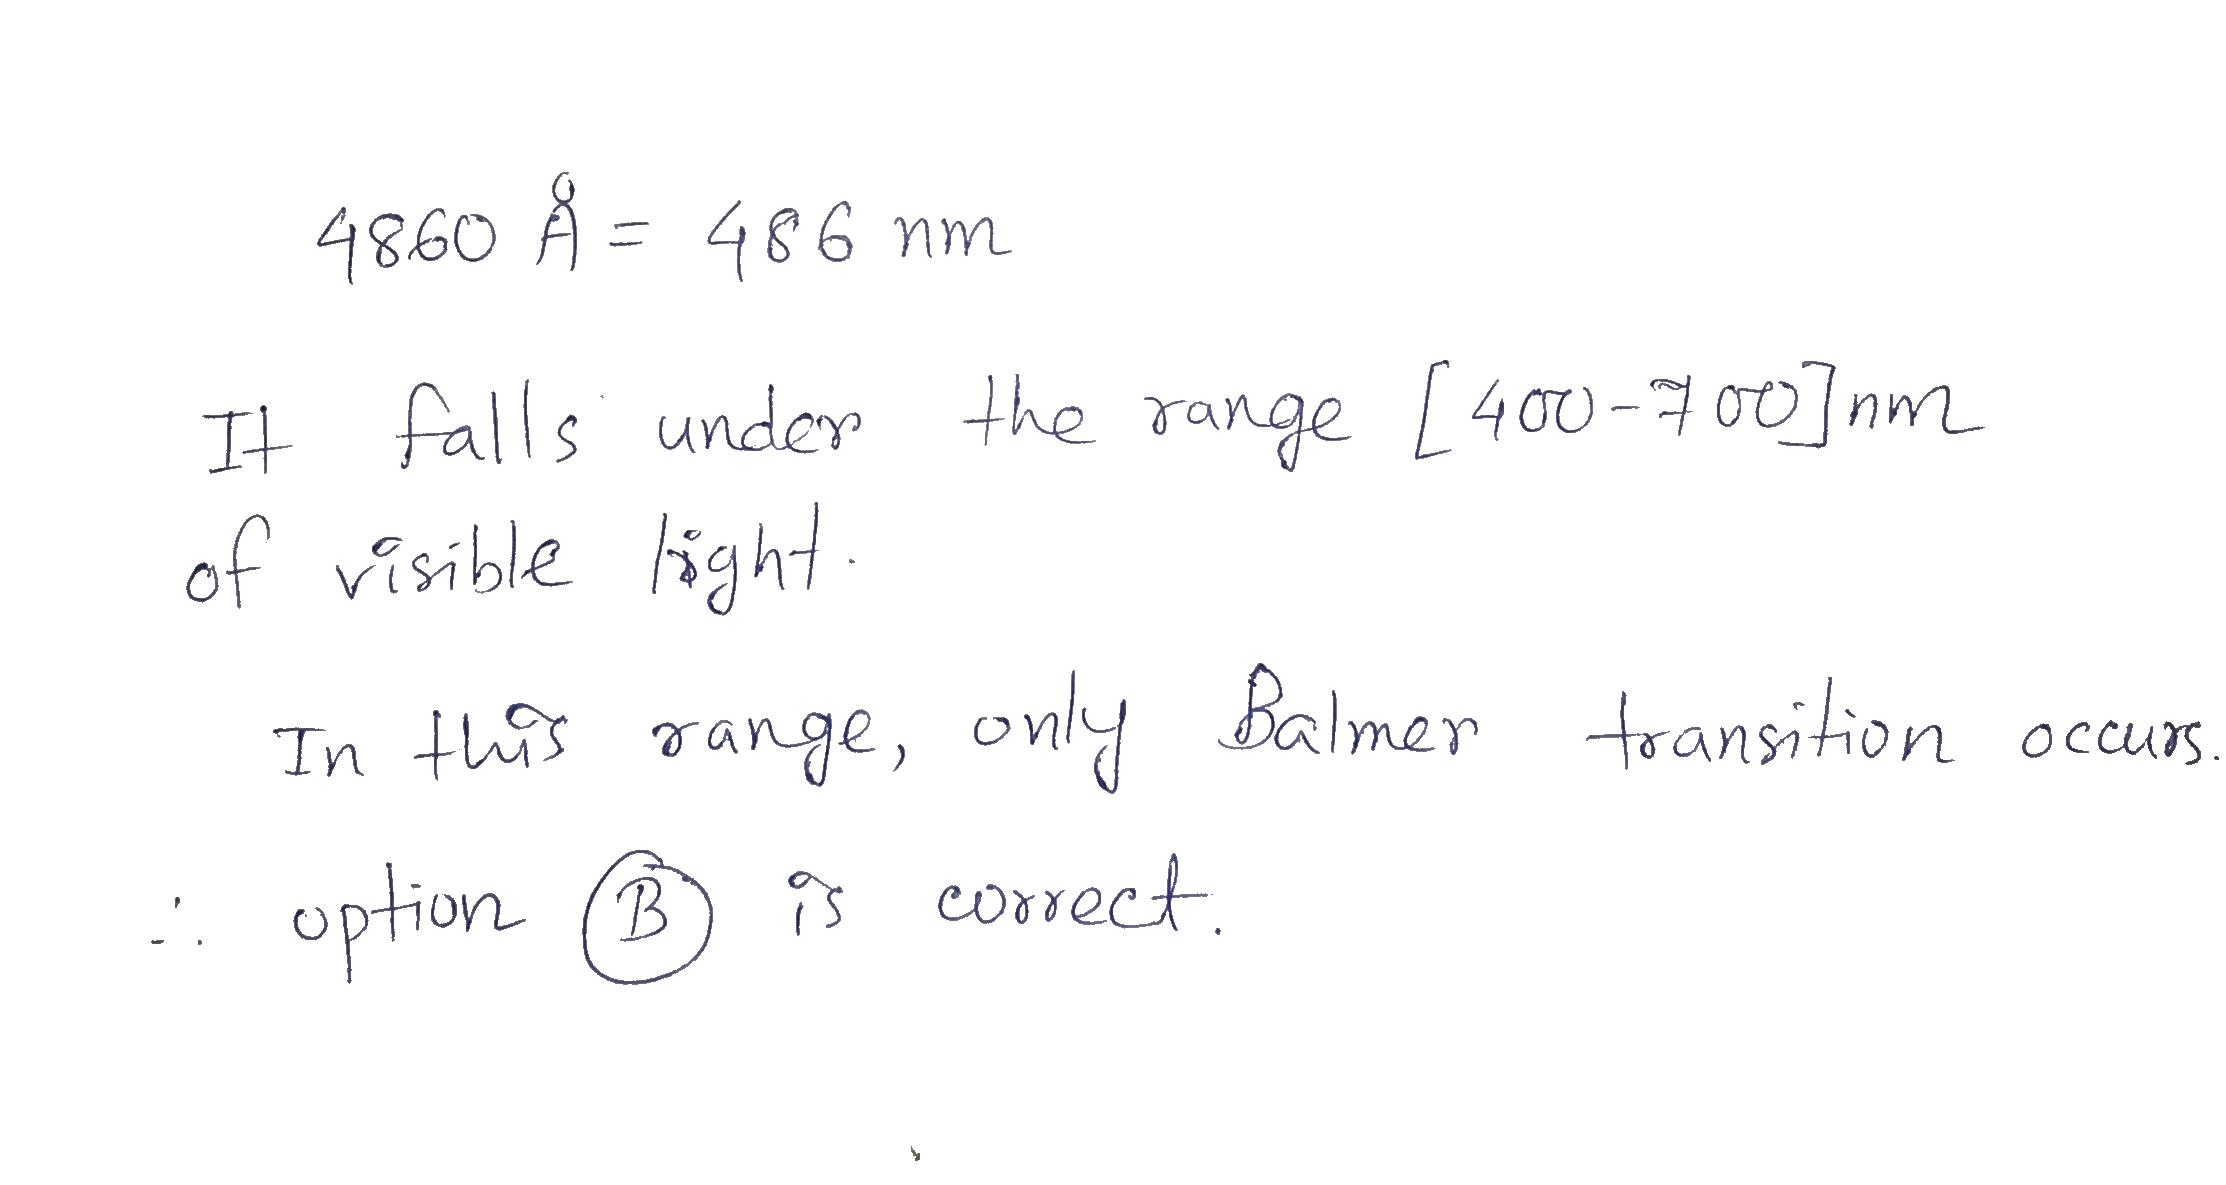 4860 Å = 486 nm
It falls under the range [400-700]nm
of visible light.
In this range, only Balmer transition occurs.
∴ option B is correct.